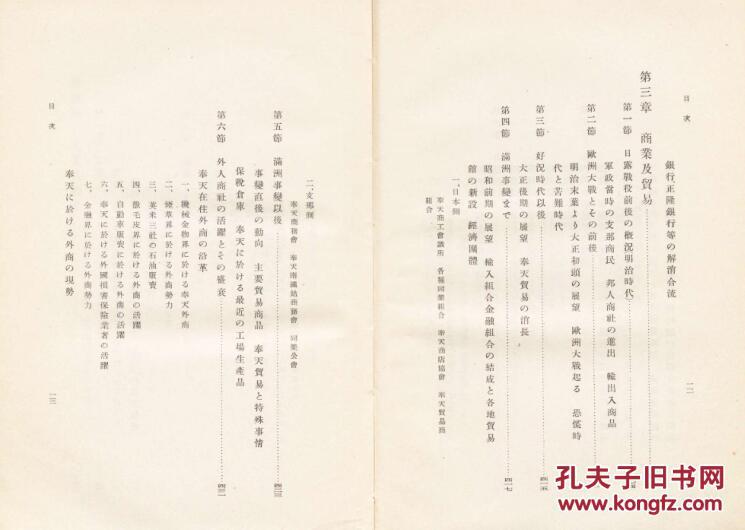 目次
銀行、正隆銀行等の解消合流
第三章 商業及貿易
第一節 日露戰役前後の概況(明治時代)
軍政當時の支那商民 邦人商社の進出 輸出入商品
第二節 歐洲大戰とその前後
明治末葉より大正初頭の展望 歐洲大戰起る 恐慌時
代と苦難時代
第三節 好況時代以後 四一五
大正後期の展望 奉天貿易の消長
第四節 滿洲事變まで 四一七
昭和前期の展望 輸入組合金融組合の結成と各地貿易
館の新設 經濟團體
一、日本側
奉天商工會議所 各種同業組合 奉天商店協會 奉天貿易商
組合
一二
二、支那側
奉天商務會 奉天南滿站商務會 同業公會
第五節 滿洲事變以後 四二三
事變直後の動向 主要貿易商品 奉天貿易と特殊事情
保稅倉庫 奉天に於ける最近の工場生產品
第六節 外人商社の活躍とその盛衰
奉天在住外商の沿革
一、機械金物界に於ける奉天外商
二、煙草界に於ける外商勢力
三、英米三社の石油販賣
四、獸毛皮界に於ける外商の活躍
五、自動車販賣に於ける外商の活躍
六、奉天に於ける外國損害保險業者の活躍
七、金融界に於ける外商勢力
奉天に於ける外商の現勢
目次
一三
孔夫子旧书网
kongfz.com